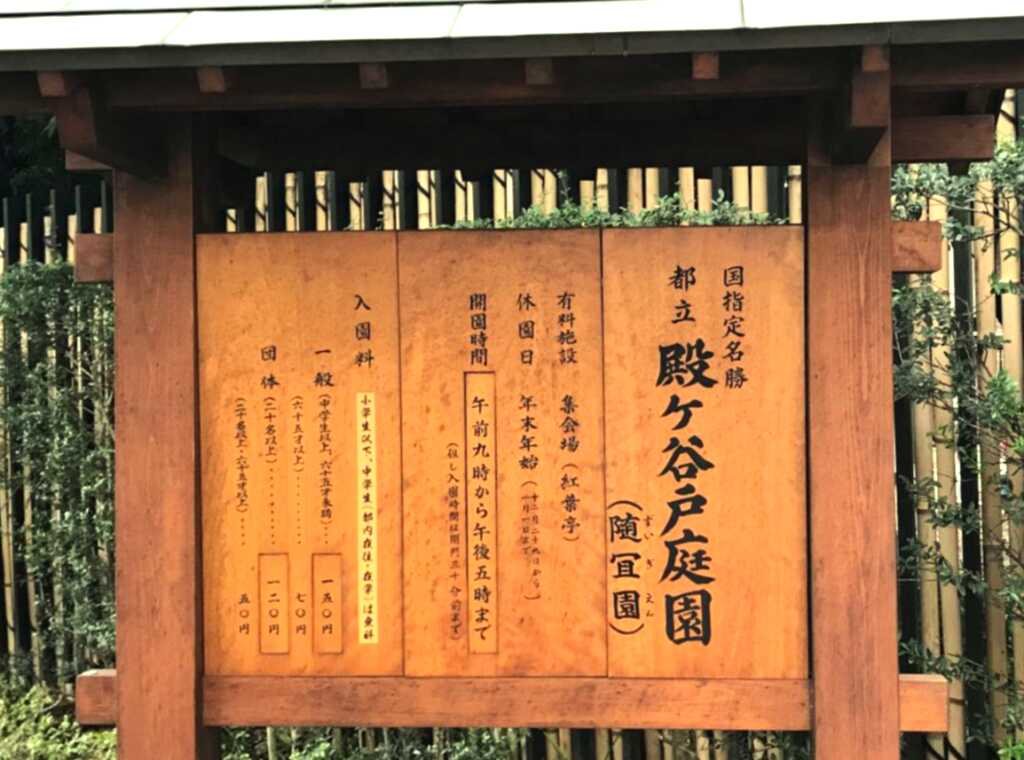 国指定名勝
都立 殿ヶ谷戸庭園
(随冝園)
ずいぎえん
有料施設 集会場(紅葉亭)
休園日 年末年始(十二月二十九日から一月一日まで)
開園時間 午前九時から午後五時まで
(但し入園時間は閉門三十分前まで)
入園料 小学生以下、中学生(都内在住・在学)は無料
一般(中学生以上、六十五才未満)‥‥ 一五〇円
(六十五才以上)‥‥‥‥ 七〇円
団体(二十名以上)‥‥‥‥ 一二〇円
(二十名以上・六十五才以上)‥‥ 五〇円